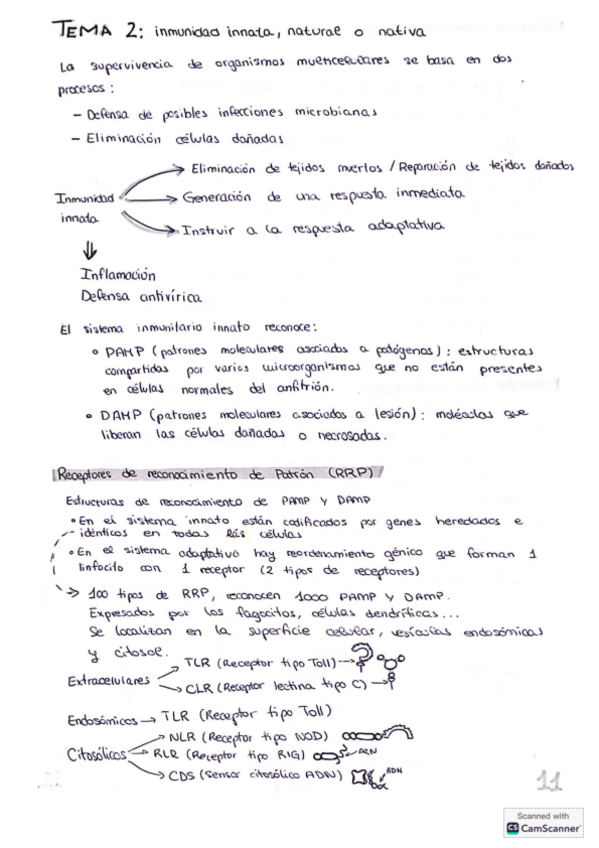 TEMA 2: inmunidad innata, natural o nativa
La supervivencia de organismos multicelulares se basa en dos
procesos:
- Defensa de posibles infecciones microbianas
- Eliminación células dañadas
Inmunidad innata
Eliminación de tejidos muertos / Reparación de tejidos dañados
Generación de una respuesta inmediata
Instruir a la respuesta adaptativa
Inflamación
Defensa antivírica
El sistema inmunitario innato reconoce:
• PAMP (patrones moleculares asociados a patógenos): estructuras
compartidas por varios microorganismos que no están presentes
en células normales del anfitrión.
• DAMP (patrones moleculares asociados a lesión): moléculas que
liberan las células dañadas o necrosadas.
Receptores de reconocimiento de Patrón (RRP)
Estructuras de reconocimiento de PAMP y DAMP
• En el sistema innato están codificados por genes heredados e
idénticos en todas las células
• En el sistema adaptativo hay reordenamiento génico que forman 1
linfocito con 1 receptor (2 tipos de receptores)
→ 100 tipos de RRP, reconocen 1000 PAMP y DAMP.
Expresados por los fagocitos, células dendríticas...
Se localizan en la superficie celular, vesículas endosómicas
y citosol.
Extracelulares
TLR (Receptor tipo Toll)
CLR (Receptor lectina tipo C)
Endosómicos → TLR (Receptor tipo Toll)
Citosólicos
NLR (Receptor tipo NOD)
RLR (Receptor tipo RIG) ARN
CDS (Sensor citosólico ADN) ADN
11
Scanned with
CS CamScanner